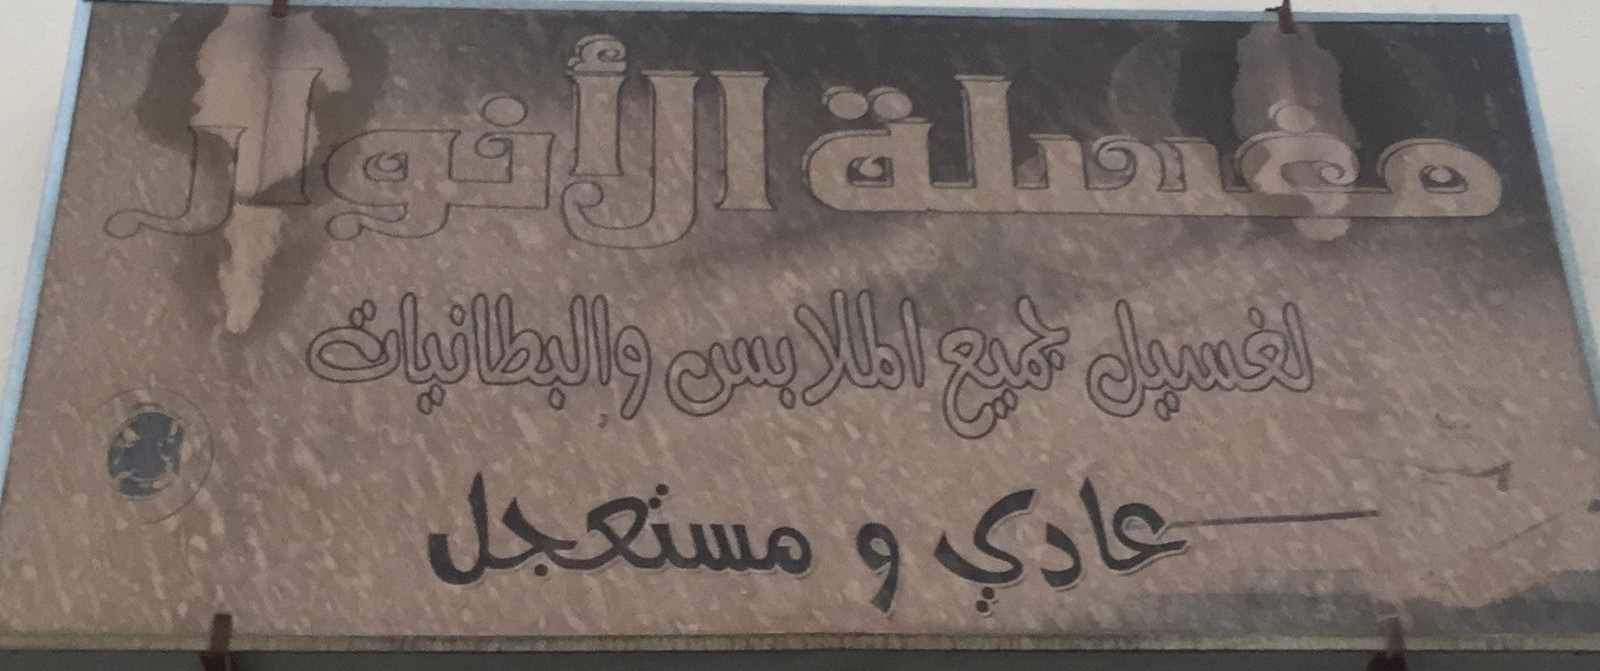 مغسلة الأنوار
لغسيل جميع الملابس والبطانيات
عادي و مستعجل